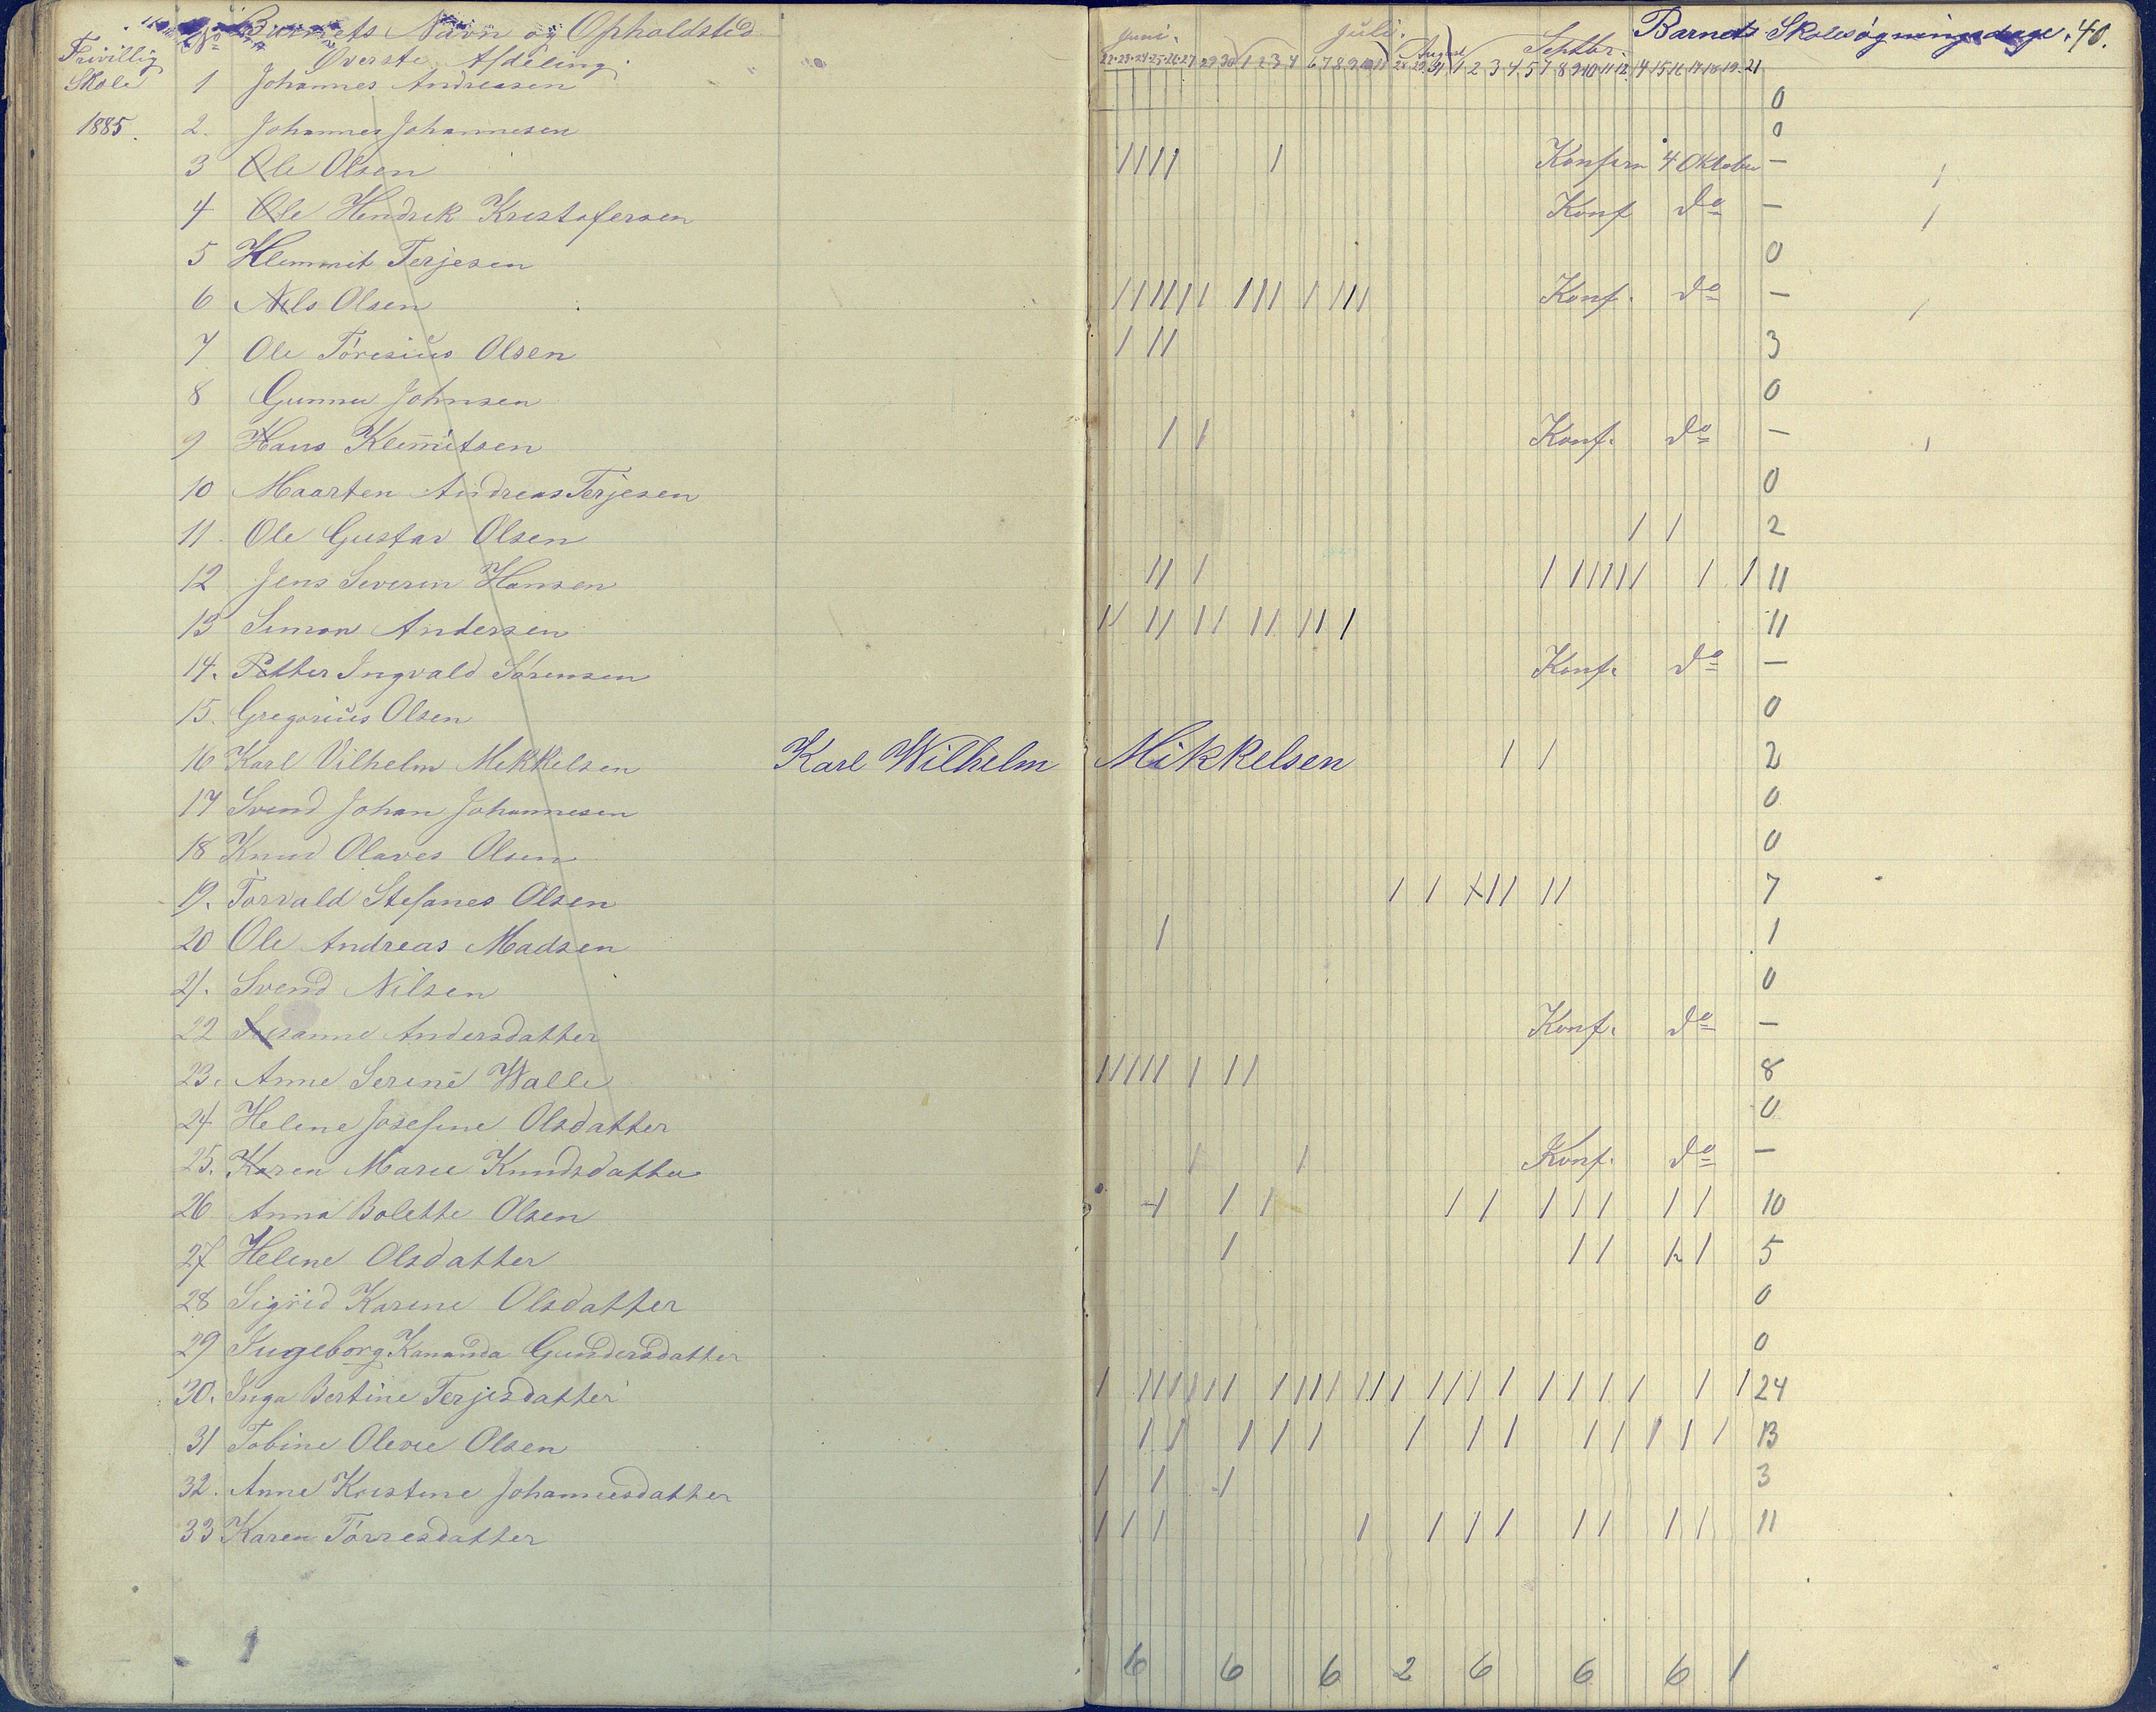 Barnets Navn og Opholdsted
Juni. Juli. August Septbr. Barnets Skolesøgningsdage. 40.
Frivillig Øverste Afdeling
22 23 24 25 26 27 29 30 1 2 3 4 6 7 8 9 10 11 28 29 31 1 2 3 4 5 7 8 9 10 11 12 14 15 16 17 18 19 21
Skole 1 Johannes Andreasen 0
1885. 2. Johannes Johannesen 0
3 Ole Olsen //// / Konfirm 4 Oktober — /
4 Ole Hendrik Kristofersen Konf do — /
5 Klemmit Terjesen 0
6 Nils Olsen ////// /// / /// Konf. do — /
7 Ole Tóresius Olsen / // 3
8 Gunner Johnsen 0
9 Hans Klem̅itsen / / Konf. do — /
10 Maarten Andreas Terjesen 0
11. Ole Gustav Olsen / / 2
12 Jens Severin Hansen // / / ////// / / 11
13 Simon Andersen // // // // /// / 11
14. Petter Ingvald Sørensen Konf. do —
15. Gregorius Olsen 0
16 Karl Vilhelm Mikkelsen Karl Wilhelm Mikkelsen / / 2
17 Svend Johan Johannesen 0
18 Knud Olaves Olsen 0
19. Torvald Stefanes Olsen / / /// // 7
20 Ole Andreas Madsen / 1
21. Svend Nilsen 0
22 Susanne Andersdatter Konf. do —
23. Anne Serine Walle ///// / // 8
24 Helene Josefine Olsdatter 0
25. Karen Marie Knudsdatter / / Konf. do —
26 Anna Bolette Olsen / / / / / / / / / / 10
27 Helene Olsdatter / / / / / 5
28 Sigrid Karine Olsdatter 0
29 Ingeborg Kananda Gundersdatter 0
30. Inga Bertine Terjesdatter / ////// //// /// / //// / //// / / / 24
31 Tobine Olevie Olsen // /// / // / / / / / 13
32. Anne Kristine Johannesdatter / / / 3
33 Karen Torresdatter / / / / / / / / / / / 11
6 6 6 2 6 6 6 1